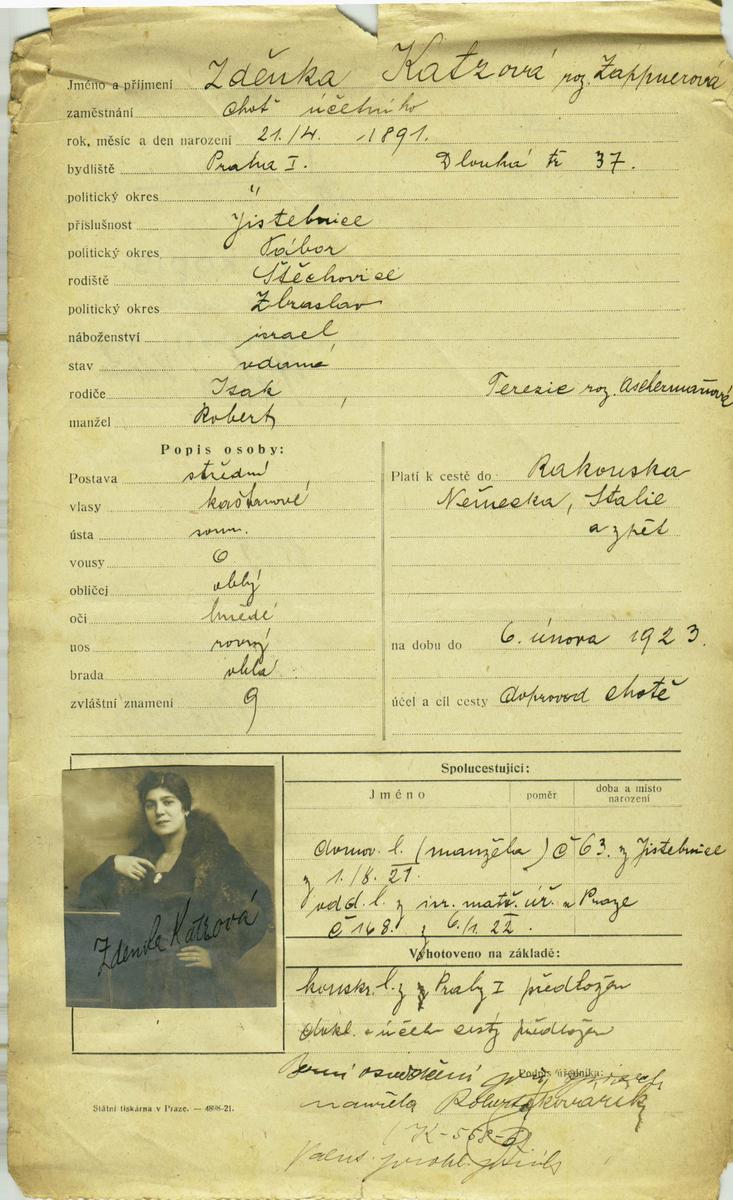 Jméno a příjmení Zděnka Katzová roz. Zappnerová
zaměstnání choť účetního
rok, měsíc a den narození 21./4. 1891.
bydliště Praha I. Dlouhá tř 37.
politický okres "
příslušnost Jistebnice
politický okres Tábor
rodiště Štěchovice
politický okres Zbraslav
náboženství israel
stav vdaná
rodiče Isak Terezie roz. Aschermanová
manžel Robert
Popis osoby:
Postava střední
vlasy kaštanové
ústa soum.
vousy 0
obličej oblý
oči hnědé
nos rovný
brada oblá
zvláštní znamení
Platí k cestě do Rakouska
Německa, Italie
a zpět
na dobu do 6. února 1923.
účel a cíl cesty doprovod chotě
Spolucestující:
Jméno poměr doba a místo narození
domov. l. (manžela) č 63. z Jistebnice
z 1./8. 21.
odd. l. z isr. matr. úř. v Praze
č 168. z 6./1. 22.
Vyhotoveno na základě:
konskr. l. z Prahy I předložen
dokl. o účelu cesty předložen
Berní osvědčení
Podpis úředníka:
Robert
Zdenka Katzová
Státní tiskárna v Praze. — 4898-21.